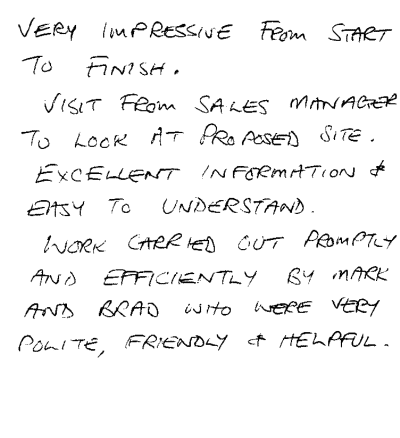 VERY IMPRESSIVE FROM START
TO FINISH.
VISIT FROM SALES MANAGER
TO LOOK AT PROPOSED SITE.
EXCELLENT INFORMATION &
EASY TO UNDERSTAND.
WORK CARRIED OUT PROMPTLY
AND EFFICIENTLY BY MARK
AND BRAD WHO WERE VERY
POLITE, FRIENDLY & HELPFUL.